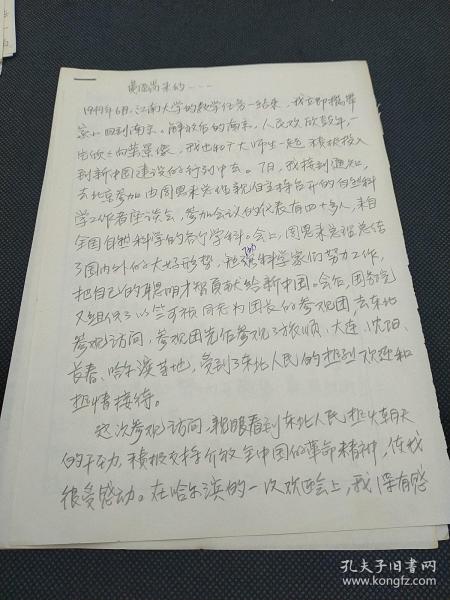 1949年6月,江南大学的教学任务一结束,我立即携带
家小回到南京。解放后的南京,人民欢欣鼓舞,一
出欣欣向荣景象,我也和广大师生一起,积极投入
到新中国建设的行列中去。7月,我接到通知,
去北京参加由周恩来总理亲自主持召开的自然科
学工作者座谈会,参加会议的代表有四十多人,来自
全国自然科学的各个学科。会上,周恩来总理总结
了国内外的大好形势,科学家们努力工作,
把自己的聪明才智贡献给新中国。会后,国务院
又组织了以竺可桢同志为团长的参观团,去东北
参观访问,参观团先后参观了旅顺、大连、沈阳、
长春、哈尔滨等地,受到了东北人民的热烈欢迎和
热情接待。
这次参观访问,亲眼看到东北人民热火朝天
的干劲,积极支持解放全中国的革命精神,使我
很受感动。在哈尔滨的一次欢迎会上,我深有感
孔夫子旧书网
www.kongfz.com